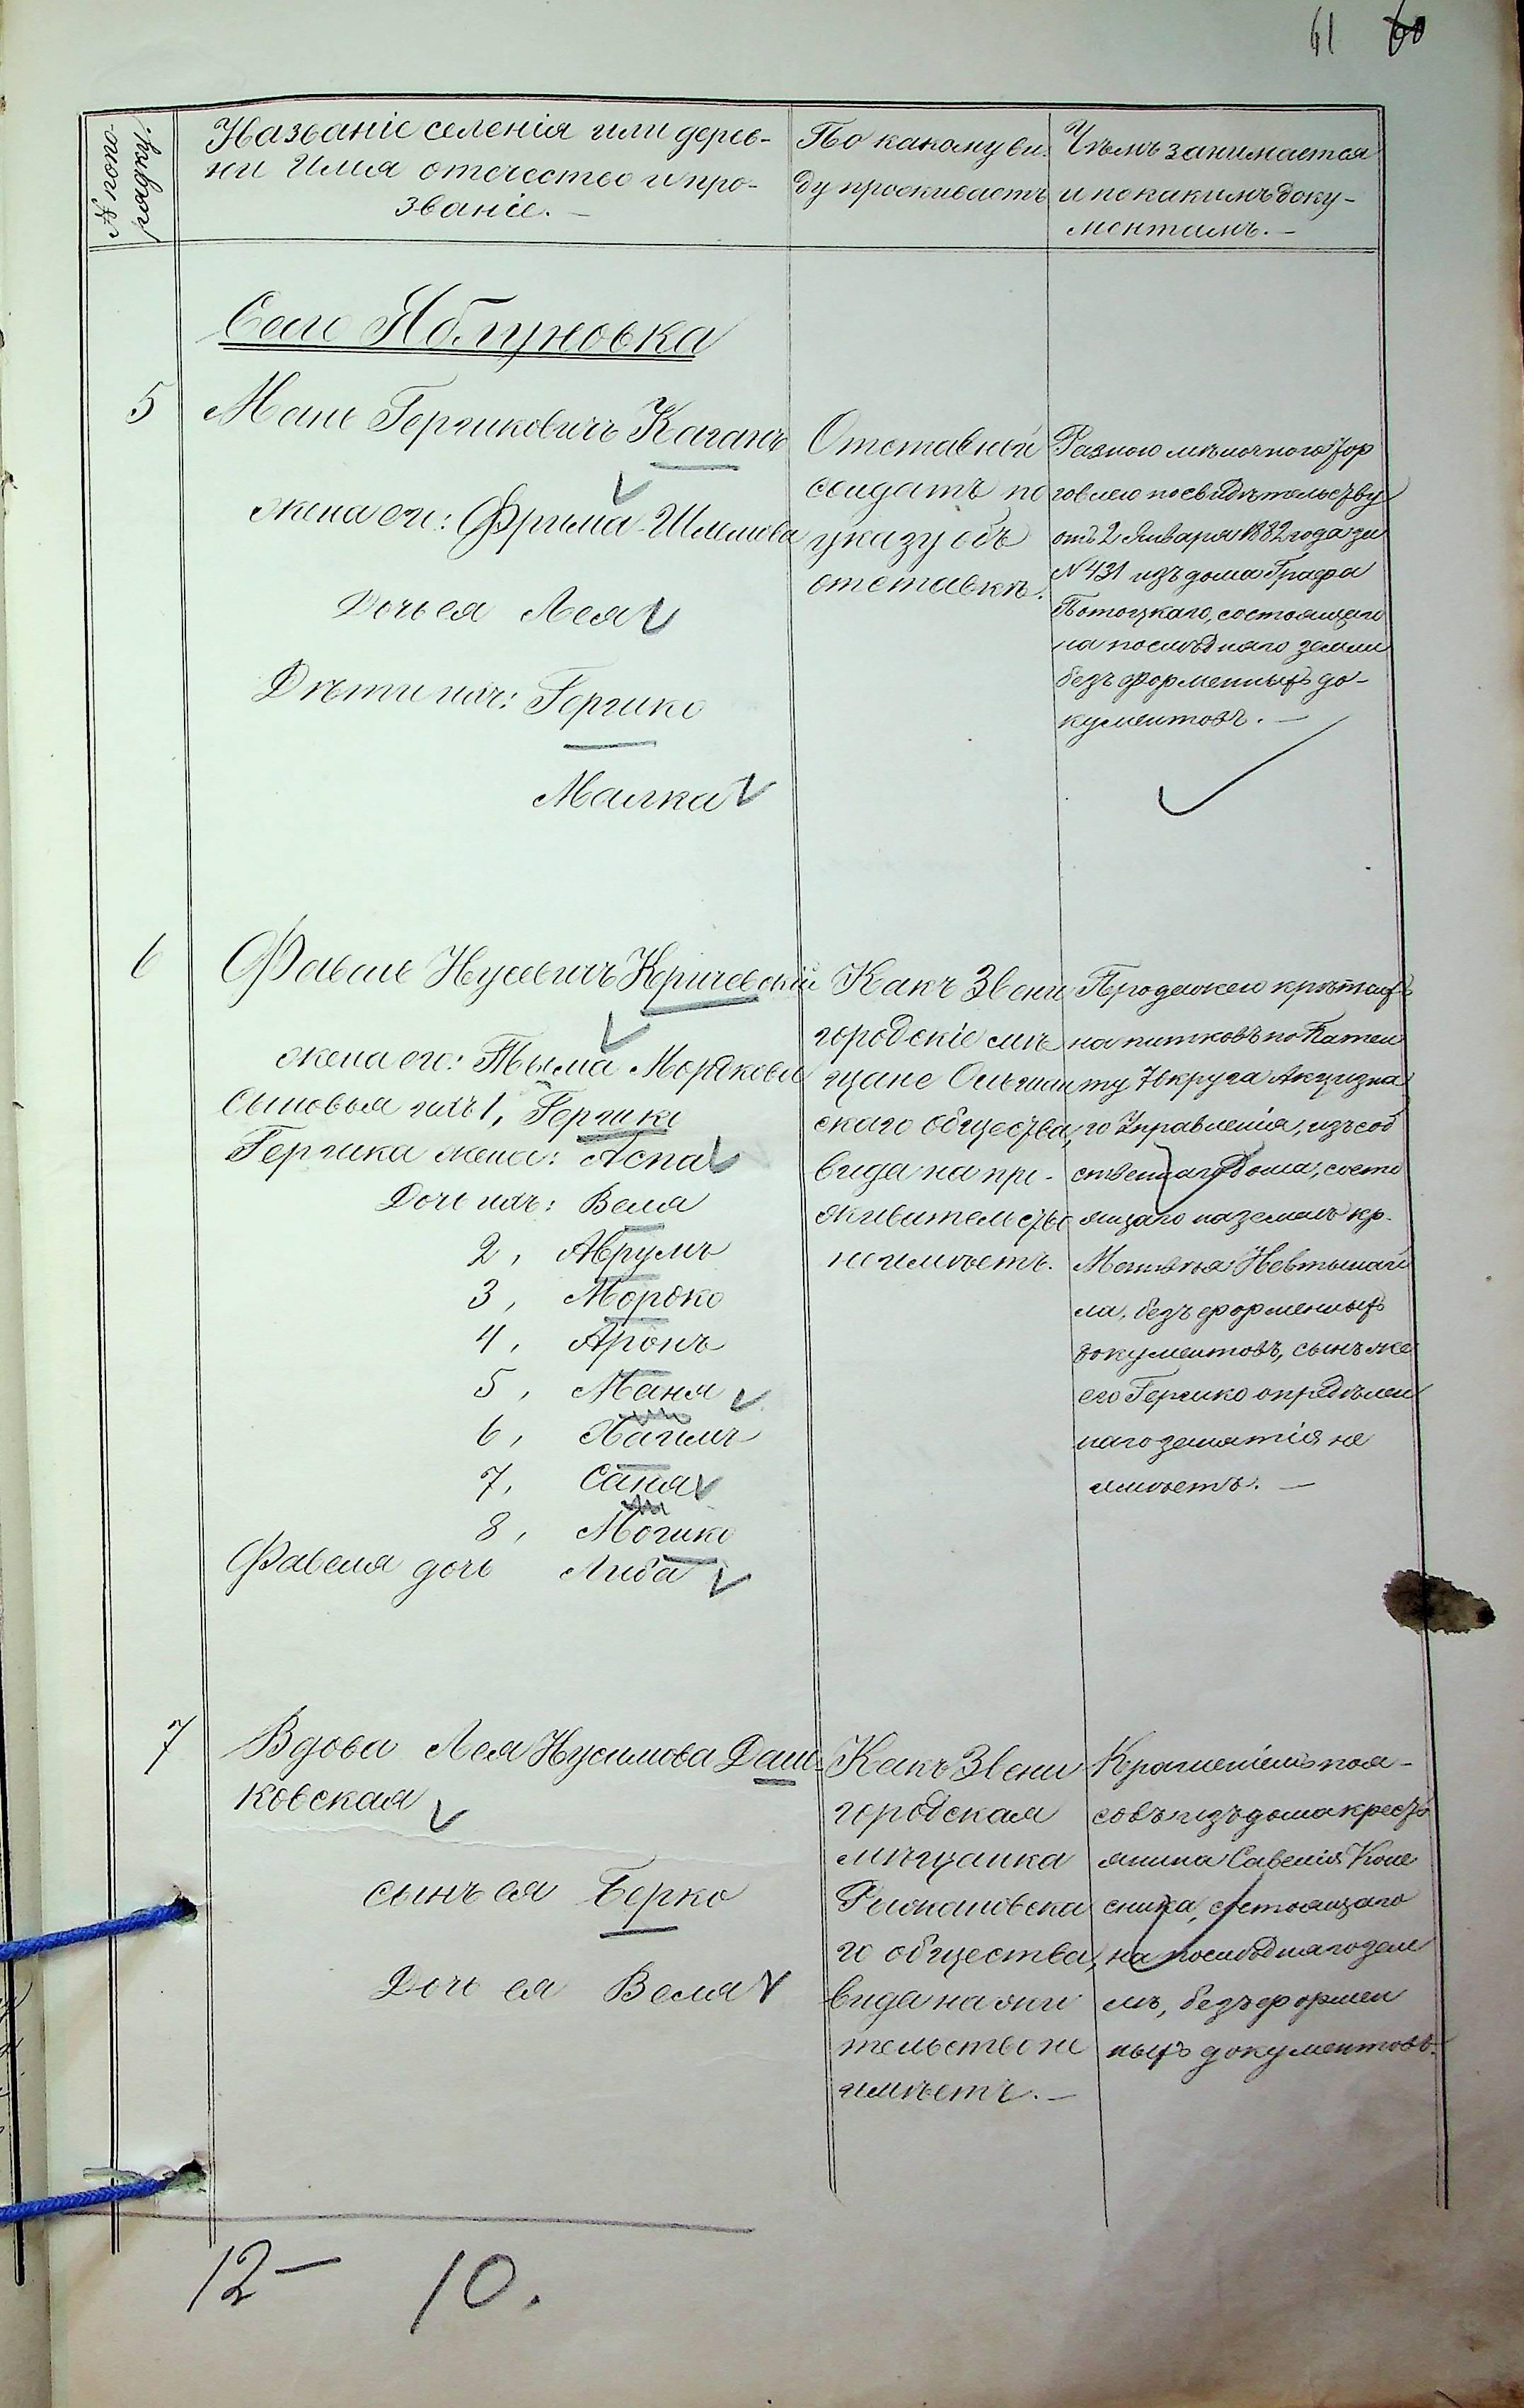 61 60
№ того
порядку.
Названіе селенія или дерев-
ни Имя отечество и про-
званіе. –
По какому ви-
ду проживаетъ
Чѣмъ занимается
и по какимъ доку-
ментамъ. –
Село Яблуновка
5
Гершковичъ Каганъ
жена его: Фрима Шлiомова
Дочь ея Лея
Дѣти ихъ: Гершко
Малка
Отставной
солдатъ по
указу объ
отставкѣ.
Разною мѣлочною тор
говлею по свидѣтельству
отъ 2 Января 1882 года за
№ 431 изъ дома Графа
Потоцкаго, состоящаго
на послѣдняго земли
безъ форменныхъ до-
кументовъ. –
6
Фавель Нусевичъ Кричевскій
жена его: Тыма Мордкова
Сыновья ихъ 1, Гершко
Гершка жена: Аспа
Дочь ихъ: Веля
2, Аврумъ
3, Мордко
4, Аронъ
5, Маня
6, Хаимъ
7, Саня
8, Мошко
Фавеля дочь Либа
Какъ Звени
городскіе мѣ
щане Ольшан
скаго общества,
вида на про-
жительство
не имѣетъ.
Продажею крѣпкихъ
напитковъ по Патен
ту 7 округа Акцизна
го Управленія, изъ соб
ственнаго дома, состо
ящаго на землѣ кр.
безъ форменныхъ
документовъ, сынъ же
его Гершко опредѣлен
наго занятія не
имѣетъ. –
7
Вдова Лея Нусимова Даш-
ковская
сынъ ея Берко
Дочь ея Веля
Какъ Звени
городская
мѣщанка
го общества,
вида на жи
тельство не
имѣетъ. –
Крашеніемъ поя-
совъ изъ дома кресть
янина Савелія Коле
сника, состоящаго
на послѣдняго зем
лѣ, безъ формен
ныхъ документовъ.
12 – 10.